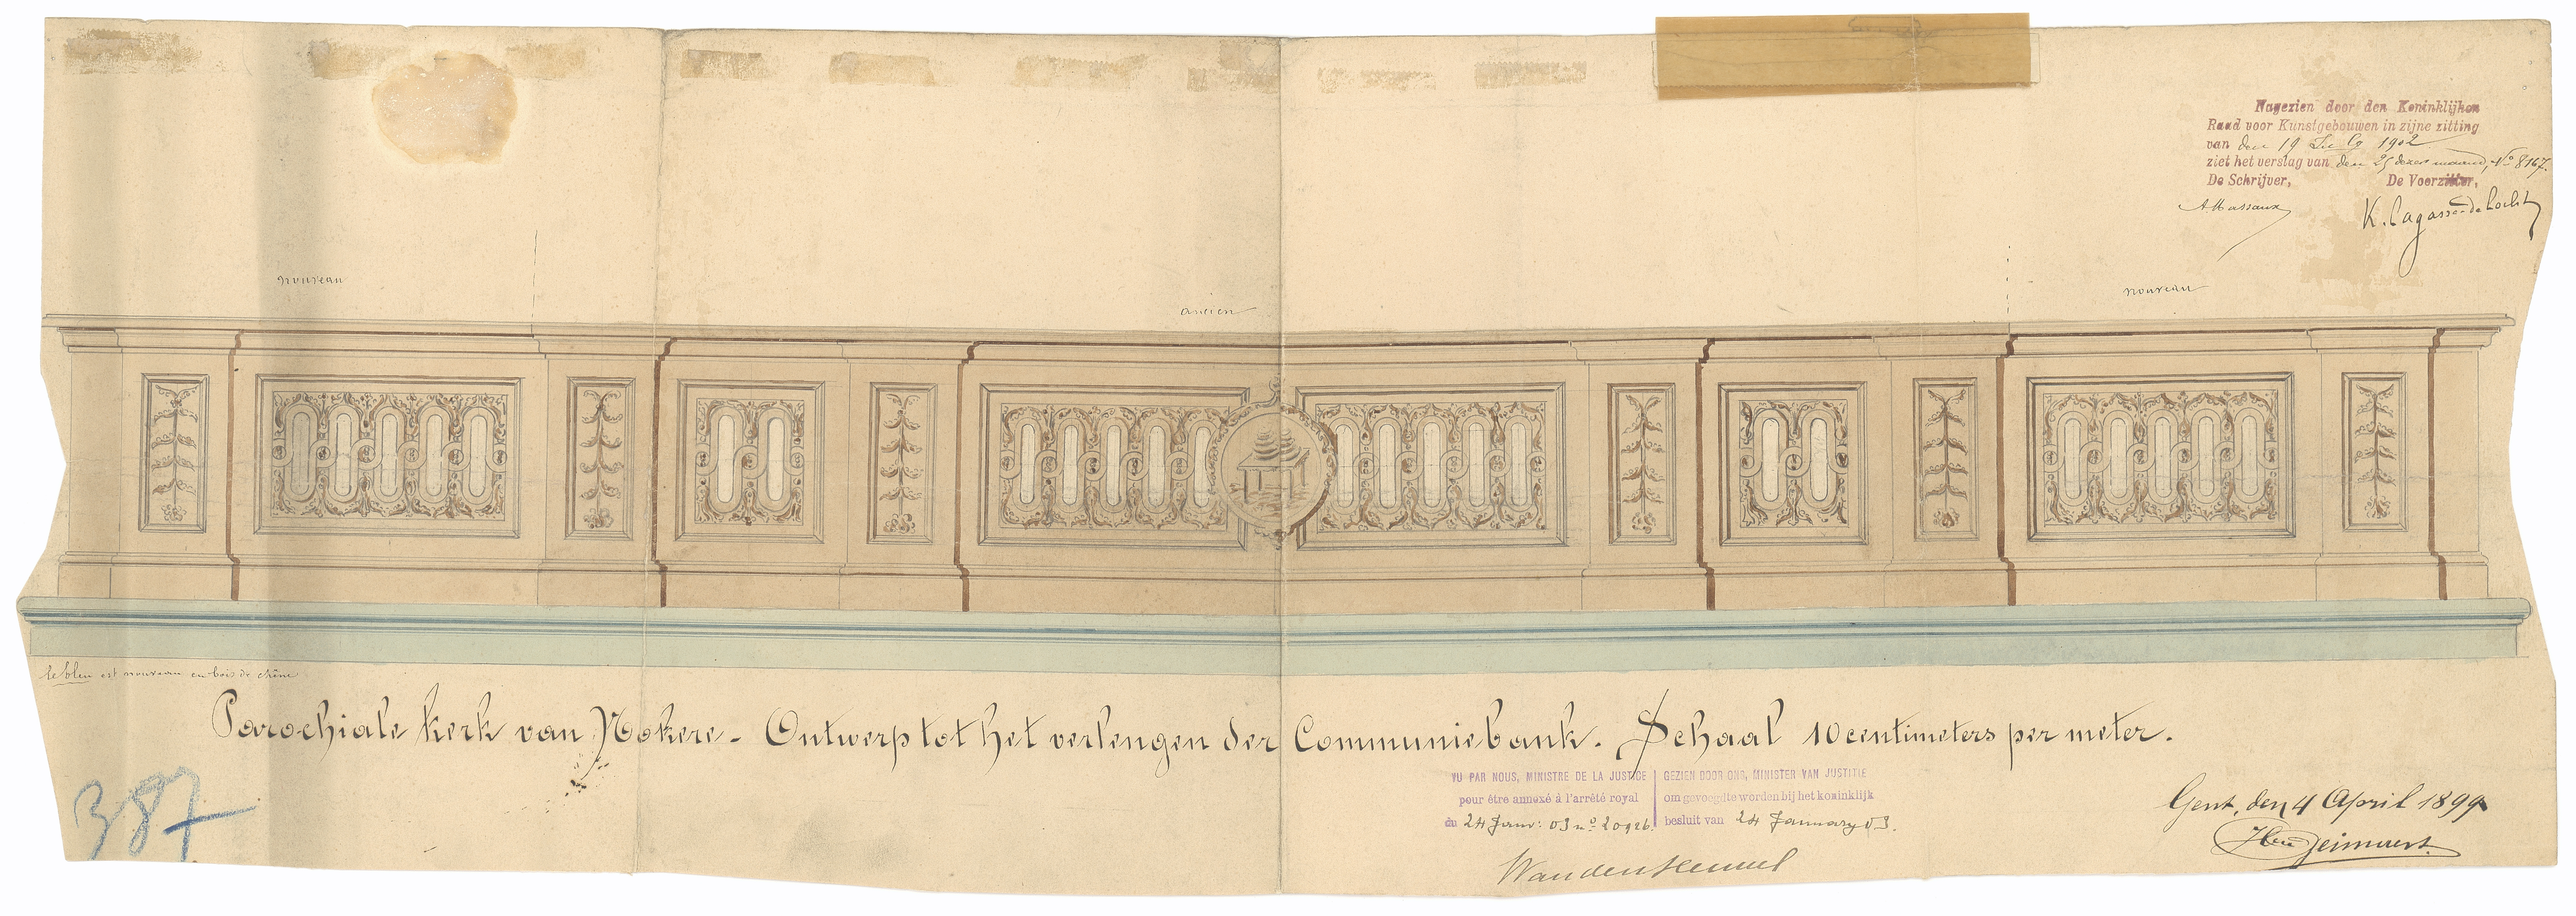 Nagezien door den Koninklijken
Raad voor Kunstgebouwen in zijne zitting
van den 19 July 1902
ziet het verslag van den 25 dezer maand, No 8167.
De Schrijver, De Voorzitter,
A Massaux K. Lagasse de Locht
nouveau
ancien
nouveau
le bleu est nouveau en bois de chêne
Parochiale kerk van Nokere. Ontwerp tot het verlengen der Communiebank. Schaal 10 centimeters per meter.
387
VU PAR NOUS, MINISTRE DE LA JUSTICE
pour être annexé à l'arrêté royal
du 24 Janv: 03 no 20926.
GEZIEN DOOR ONS, MINISTER VAN JUSTITIE
om gevoegd te worden bij het koninklijk
besluit van 24 January 03.
Gent, den 4 April 1899